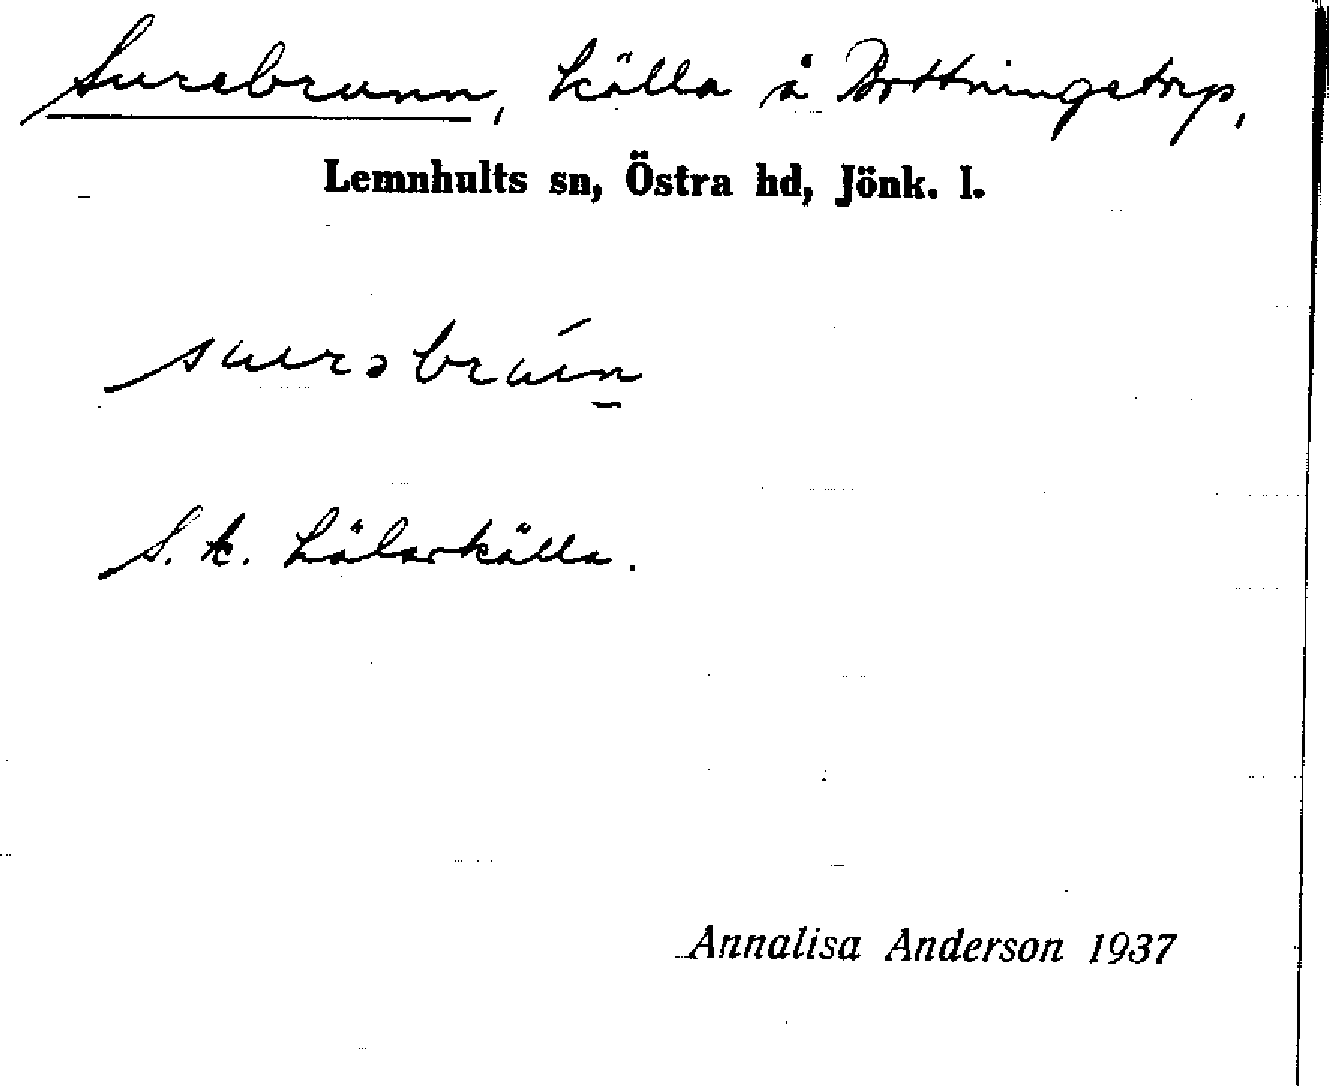 Surebrunn, källa å
Lemnhults sn, Östra hd, Jönk. l.
S. k. hälsokälla.
Annalisa Anderson 1937